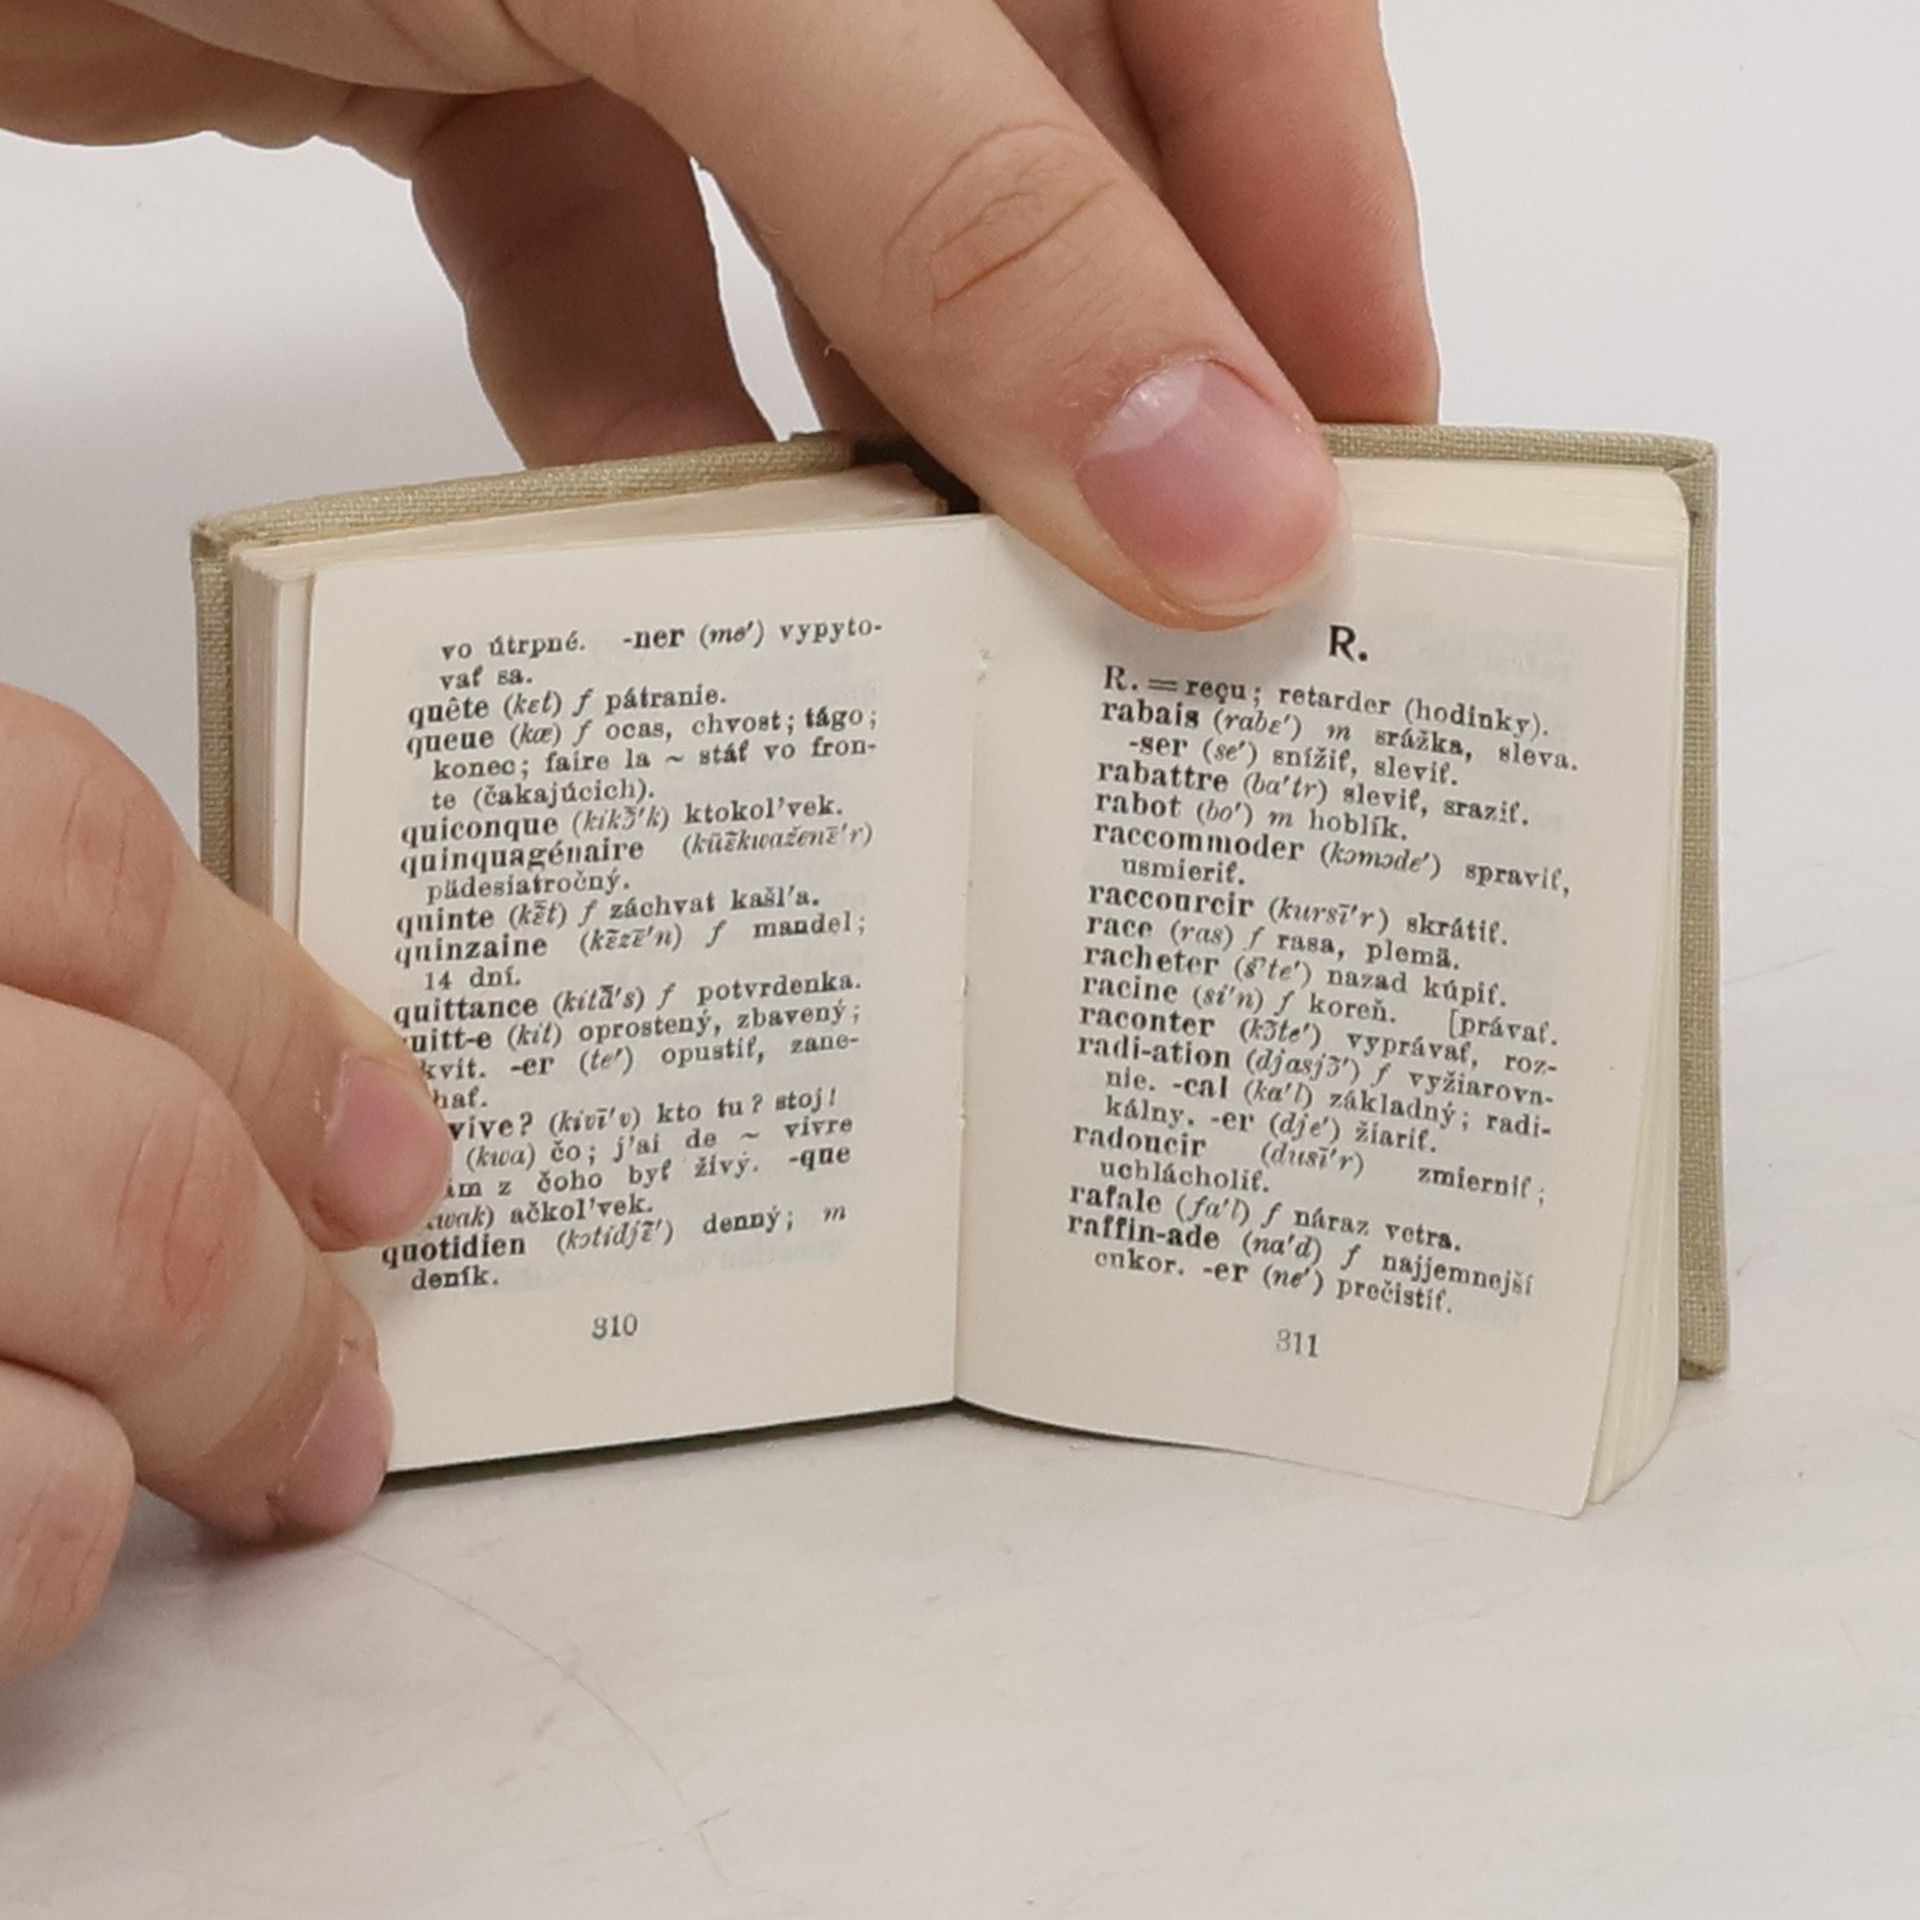 vo útrpné. -ner (me′) vypyto-
vať sa.
quête (kɛt) f pátranie.
queue (kœ) f ocas, chvost; tágo;
konec; faire la ~ stáť vo fron-
te (čakajúcich).
quiconque (kikɔ̃′k) ktokol'vek.
quinquagénaire (küɛ̃kwaženɛ̄′r)
pädesiatročný.
quinte (kɛ̃t) f záchvat kašl'a.
quinzaine (kɛ̃zɛ̄′n) f mandel;
14 dní.
quittance (kitã′s) f potvrdenka.
uitt-e (kit) oprostený, zbavený;
kvit. -er (te′) opustiť, zane-
hať.
vive? (kivī′v) kto tu? stoj!
(kwa) čo; j'ai de ~ vivre
ám z čoho byť živý. -que
wak) ačkol'vek.
quotidien (kɔtidjɛ̃′) denný; m
deník.
310
R.
R. = reçu; retarder (hodinky).
rabais (rabɛ′) m srážka, sleva.
-ser (se′) snížiť, sleviť.
rabattre (ba′tr) sleviť, sraziť.
rabot (bo′) m hoblík.
raccommoder (kɔmɔde′) spraviť,
usmieriť.
raccourcir (kursī′r) skrátiť.
race (ras) f rasa, plemä.
racheter (šte′) nazad kúpiť.
racine (si′n) f koreň. [právať.
raconter (kɔ̃te′) vyprávať, roz-
radi-ation (djasjɔ̃′) f vyžiarova-
nie. -cal (ka′l) základný; radi-
kálny. -er (dje′) žiariť.
radoucir (dusī′r) zmierniť;
uchlácholiť.
rafale (fa′l) f náraz vetra.
raffin-ade (na′d) f najjemnejší
cukor. -er (ne′) prečistiť.
311